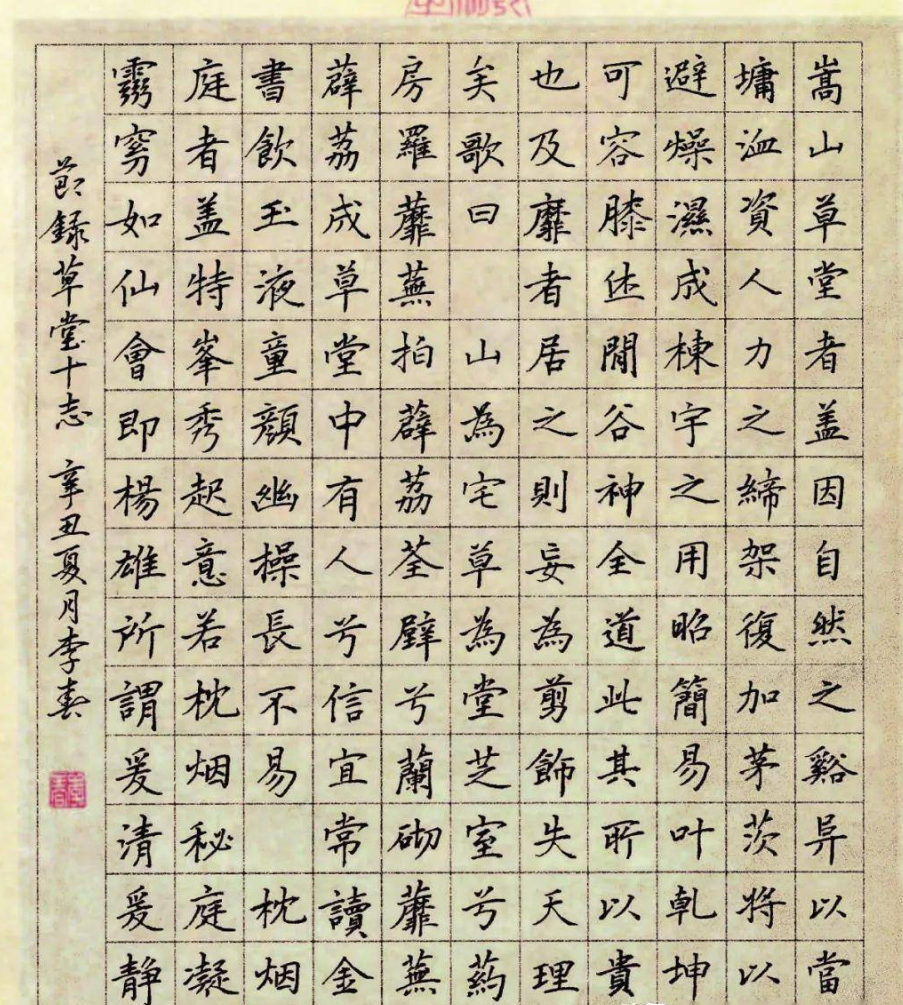 嵩山草堂者盖因自然之谿异以當
墉洫資人力之締架復加茅茨將以
避燥濕成棟宇之用昭簡易叶乹坤
可容膝休閒谷神全道此其所以貴
也及靡者居之則妄為剪飾失天理
矣歌曰 山為宅草為堂芝室兮葯
房羅蘼蕪拍薜荔荃壁兮蘭砌蘼蕪
薜荔成草堂中有人兮信宜常讀金
書飲玉液童顔幽操長不易 枕烟
庭者盖特峯秀起意若枕烟秘庭凝
窅如仙會即楊雄所謂爰清爰静
節録草堂十志 辛丑夏月李春